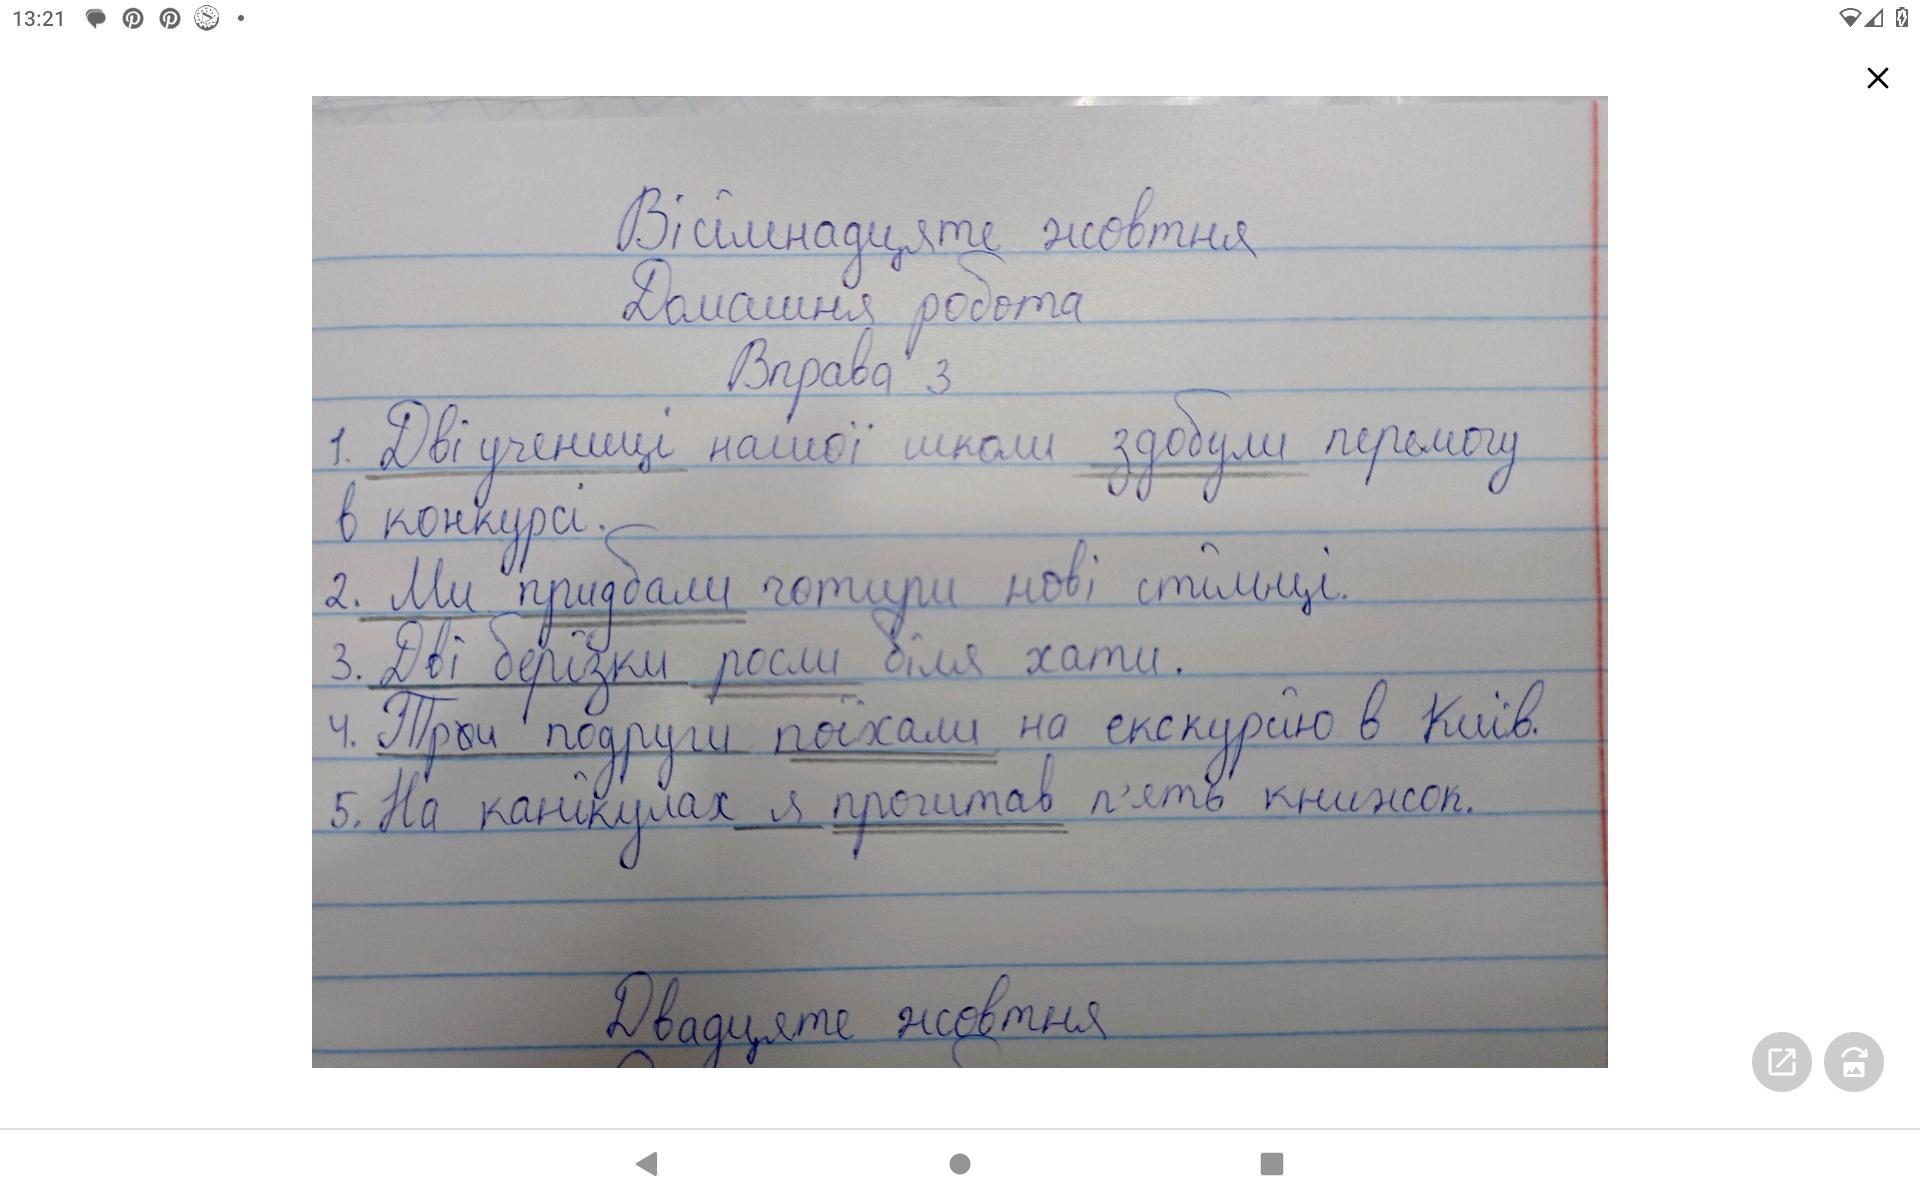 13:21
Вісімнадцяте жовтня
Домашня робота
Вправа 3
1. Дві учениці нашої школи здобули перемогу
в конкурсі.
2. Ми придбали чотири нові стільці.
3. Дві берізки росли біля хати.
4. Три подруги поїхали на екскурсію в Київ.
5. На канікулах я прочитав п'ять книжок.
Двадцяте жовтня